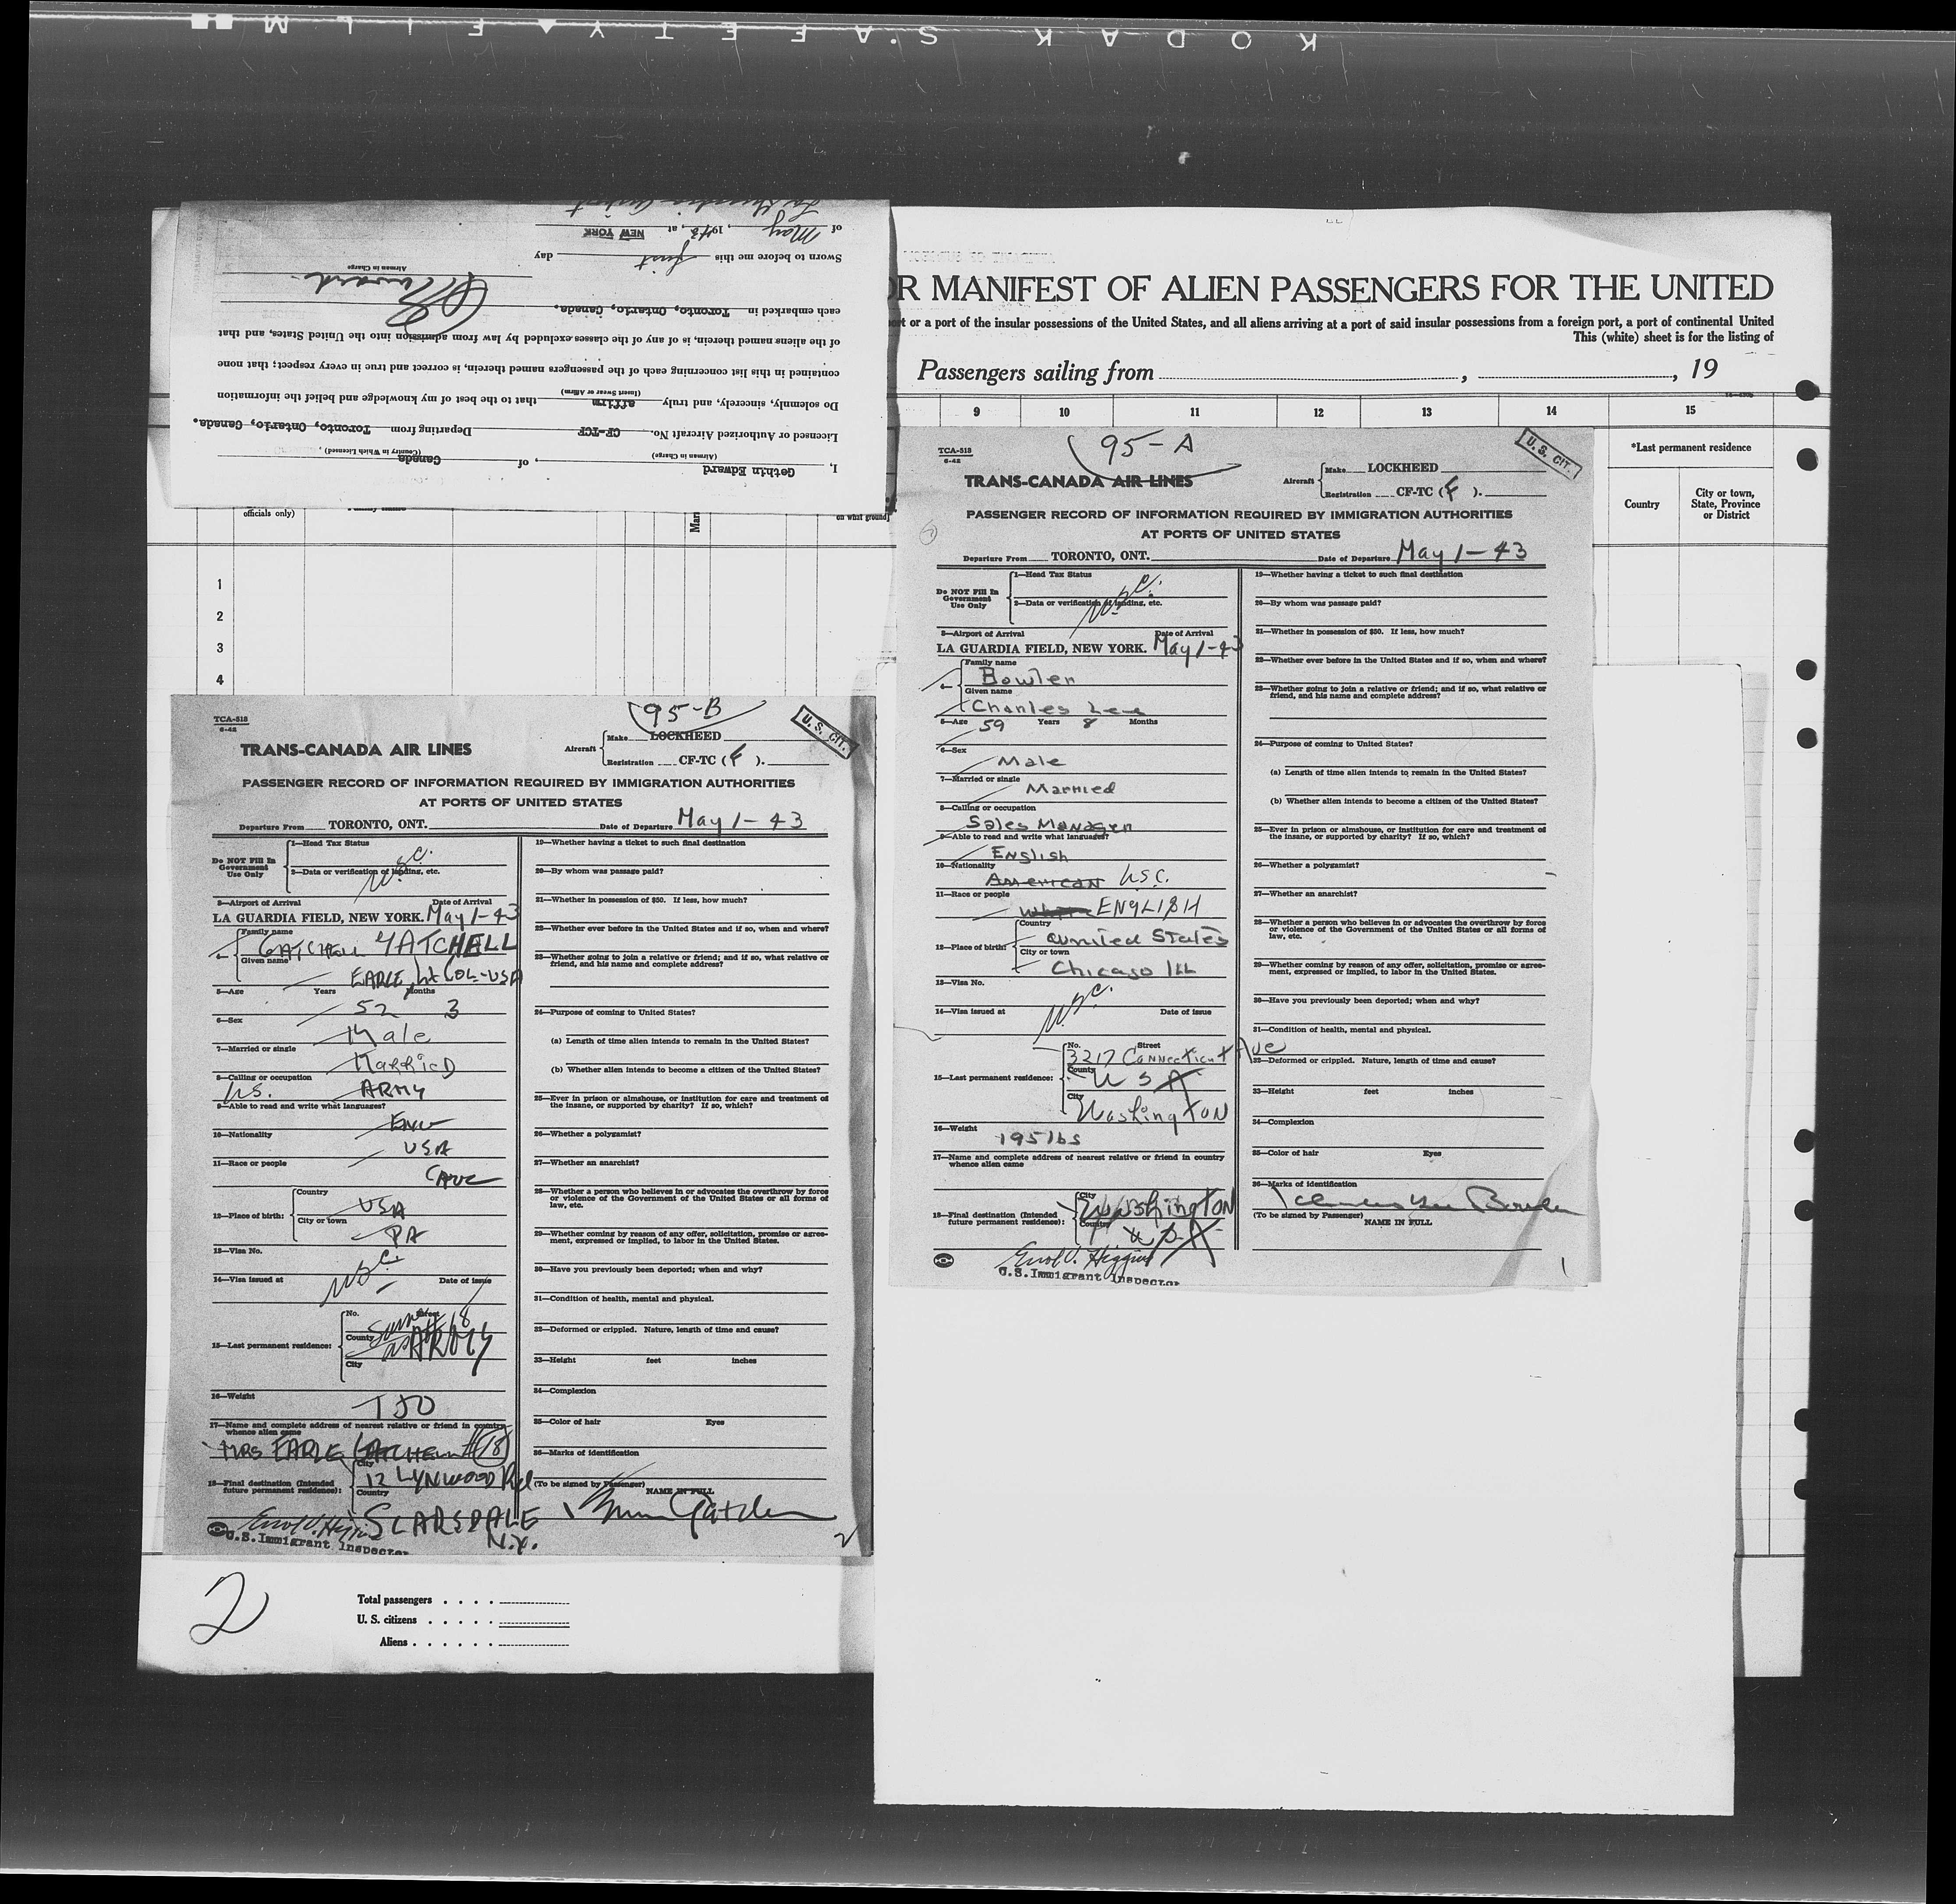 KODAK SAFETY FILM
I, Gethin Edward, of Canada
(Airman in Charge) (Country in Which Licensed)
Licensed or Authorized Aircraft No. CF-TCF Departing from Toronto, Ontario, Canada.
Do solemnly, sincerely, and truly affirm that to the best of my knowledge and belief the information
(Insert Swear or Affirm)
contained in this list concerning each of the passengers named therein, is correct and true in every respect; that none
of the aliens named therein, is of any of the classes excluded by law from admission into the United States, and that
each embarked in Toronto, Ontario, Canada.
Airman in Charge
Sworn to before me this first day
of May, 1943, at NEW YORK
La Guardia Airport
R MANIFEST OF ALIEN PASSENGERS FOR THE UNITED
ort or a port of the insular possessions of the United States, and all aliens arriving at a port of said insular possessions from a foreign port, a port of continental United
This (white) sheet is for the listing of
Passengers sailing from , , 19
9 10 11 12 13 14 15
*Last permanent residence
Country
City or town, State, Province or District
officials only)
on what ground)
1
2
3
4
95-A
U. S. CIT.
TCA-518
6-42
TRANS-CANADA AIR LINES
Aircraft
Make LOCKHEED
Registration CF-TC (F).
PASSENGER RECORD OF INFORMATION REQUIRED BY IMMIGRATION AUTHORITIES
AT PORTS OF UNITED STATES
Departure From TORONTO, ONT. Date of Departure May 1-43
Do NOT Fill In Government Use Only
1—Head Tax Status
2—Data or verification of landing, etc.
U.S.C.
3—Airport of Arrival Date of Arrival
LA GUARDIA FIELD, NEW YORK. May 1-43
4—
Family name
Bowler
Given name
Charles Lee
5—Age 59 Years 8 Months
6—Sex
Male
7—Married or single
Married
8—Calling or occupation
Sales Manager
9—Able to read and write what languages?
English
10—Nationality
American U.S.C.
11—Race or people
White ENGLISH
12—Place of birth:
Country
United States
City or town
Chicago ILL
13—Visa No.
U.S.C.
14—Visa issued at Date of issue
15—Last permanent residence:
No. Street
3217 Connecticut Ave
County
U S A
City
Washington
16—Weight
195 lbs
17—Name and complete address of nearest relative or friend in country whence alien came
18—Final destination (Intended future permanent residence):
City
Washington
Country
U S A
Errol V. Higgins
U.S. Immigrant Inspector
19—Whether having a ticket to such final destination
20—By whom was passage paid?
21—Whether in possession of $50. If less, how much?
22—Whether ever before in the United States and if so, when and where?
23—Whether going to join a relative or friend; and if so, what relative or
friend, and his name and complete address?
24—Purpose of coming to United States?
(a) Length of time alien intends to remain in the United States?
(b) Whether alien intends to become a citizen of the United States?
25—Ever in prison or almshouse, or institution for care and treatment of
the insane, or supported by charity? If so, which?
26—Whether a polygamist?
27—Whether an anarchist?
28—Whether a person who believes in or advocates the overthrow by force
or violence of the Government of the United States or all forms of
law, etc.
29—Whether coming by reason of any offer, solicitation, promise or agree-
ment, expressed or implied, to labor in the United States.
30—Have you previously been deported; when and why?
31—Condition of health, mental and physical.
32—Deformed or crippled. Nature, length of time and cause?
33—Height feet inches
34—Complexion
35—Color of hair Eyes
36—Marks of identification
Charles Lee Bowler
(To be signed by Passenger) NAME IN FULL
1
95-B
U. S. CIT.
TCA-518
6-42
TRANS-CANADA AIR LINES
Aircraft
Make LOCKHEED
Registration CF-TC (F).
PASSENGER RECORD OF INFORMATION REQUIRED BY IMMIGRATION AUTHORITIES
AT PORTS OF UNITED STATES
Departure From TORONTO, ONT. Date of Departure May 1-43
Do NOT Fill In Government Use Only
1—Head Tax Status
2—Data or verification of landing, etc.
U.S.C.
3—Airport of Arrival Date of Arrival
LA GUARDIA FIELD, NEW YORK. May 1-43
4—
Family name
GATCHELL GATCHELL
Given name
EARLE, Lt COL-USA
5—Age Years Months
52 3
6—Sex
Male
7—Married or single
Married
8—Calling or occupation
U.S. ARMY
9—Able to read and write what languages?
ENG
10—Nationality
USA
11—Race or people
CAUC
12—Place of birth:
Country
USA
City or town
PA
13—Visa No.
U.S.C.
14—Visa issued at Date of issue
15—Last permanent residence:
No. Street
Same as # 18
County
ARMY
City
16—Weight
150
17—Name and complete address of nearest relative or friend in country
whence alien came
MRS EARLE GATCHELL #18
18—Final destination (Intended future permanent residence):
City
12 LYNWOOD Rd
Country
SCARSDALE
N.Y.
Errol V. Higgins
U.S. Immigrant Inspector
19—Whether having a ticket to such final destination
20—By whom was passage paid?
21—Whether in possession of $50. If less, how much?
22—Whether ever before in the United States and if so, when and where?
23—Whether going to join a relative or friend; and if so, what relative or
friend, and his name and complete address?
24—Purpose of coming to United States?
(a) Length of time alien intends to remain in the United States?
(b) Whether alien intends to become a citizen of the United States?
25—Ever in prison or almshouse, or institution for care and treatment of
the insane, or supported by charity? If so, which?
26—Whether a polygamist?
27—Whether an anarchist?
28—Whether a person who believes in or advocates the overthrow by force
or violence of the Government of the United States or all forms of
law, etc.
29—Whether coming by reason of any offer, solicitation, promise or agree-
ment, expressed or implied, to labor in the United States.
30—Have you previously been deported; when and why?
31—Condition of health, mental and physical.
32—Deformed or crippled. Nature, length of time and cause?
33—Height feet inches
34—Complexion
35—Color of hair Eyes
36—Marks of identification
(To be signed by Passenger) NAME IN FULL
2
2
Total passengers
U. S. citizens
Aliens